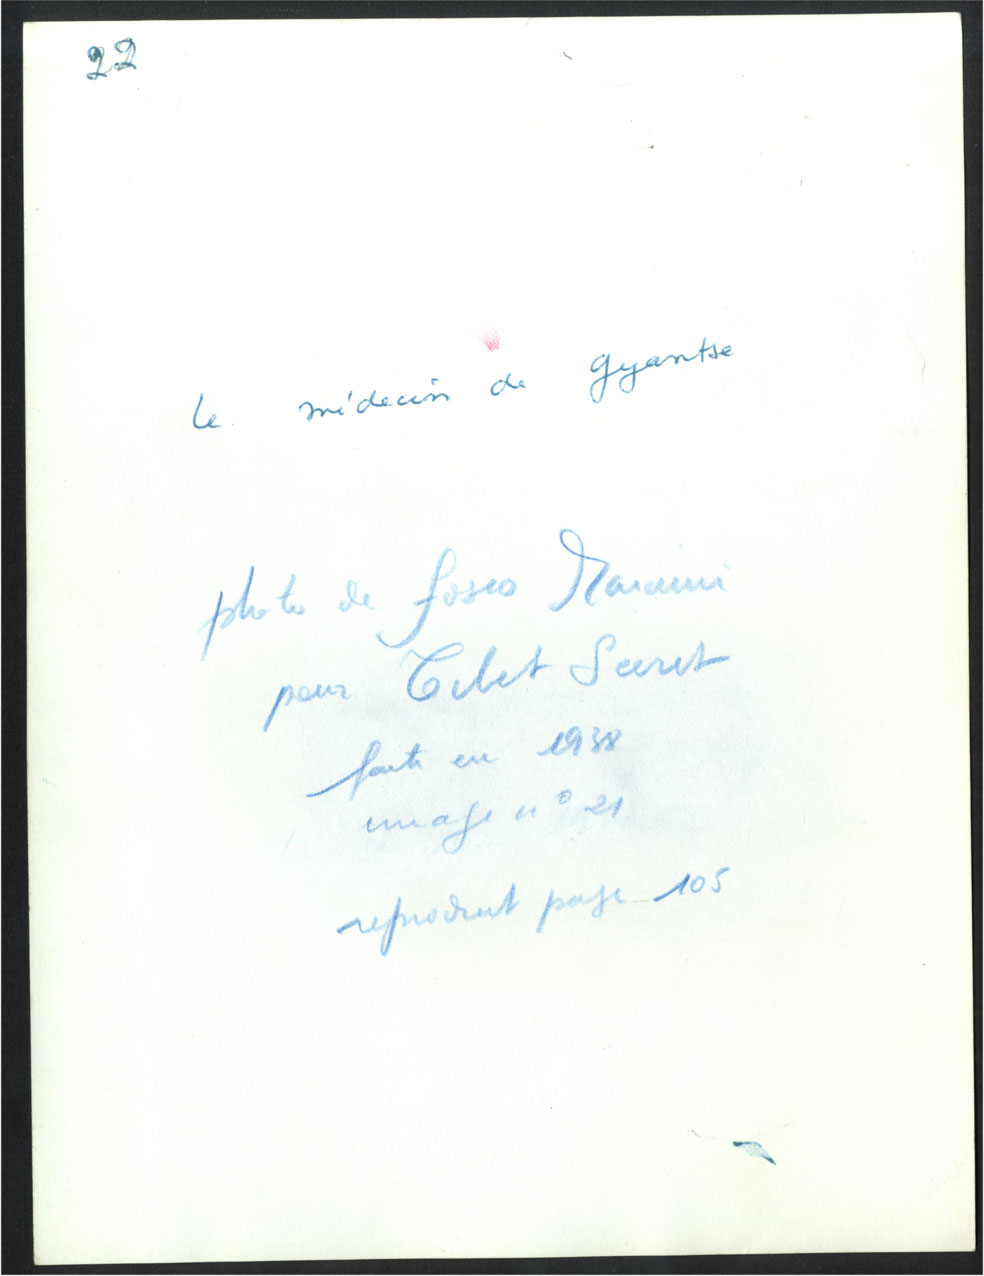 22
le médecin de Gyantse
photo de fosco Maraini
pour Tibet Secret
faite en 1938
image n° 21
reproduit page 105